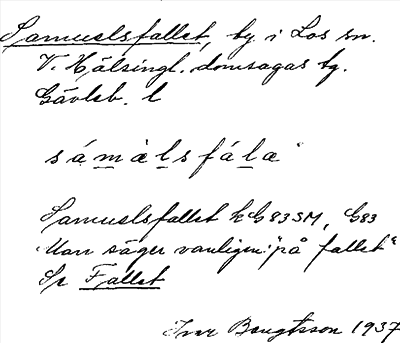 Samuelsfallet, by i Los sn.
V. Hälsingl. domsagas tg.
Gävleb. l
sámàlsfála
Samuelsfallet kG83SM, G83
"Man säger vanligen: "på fallet"
Se Fallet
Ivar Bengtsson 1937